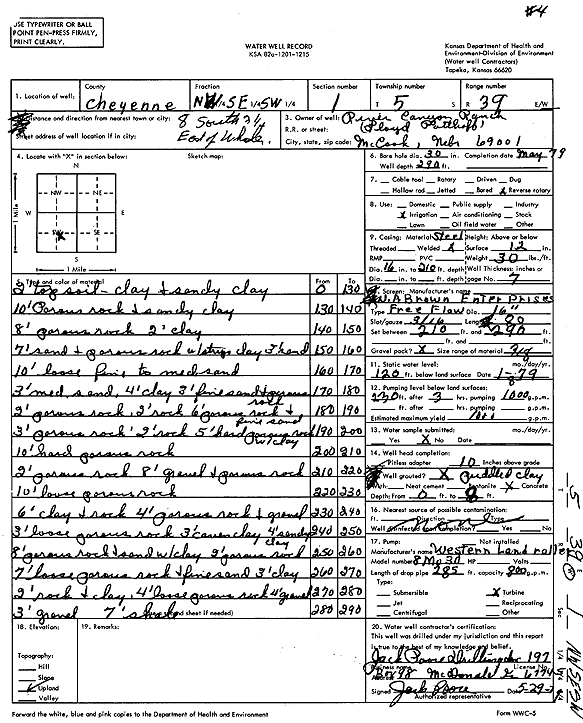 #4
USE TYPEWRITER OR BALL
POINT PEN-PRESS FIRMLY,
PRINT CLEARLY.
WATER WELL RECORD
KSA 82a-1201-1215
Kansas Department of Health and
Environment-Division of Environment
(Water well Contractors)
Topeka, Kansas 66620
1. Location of well:
County
Cheyenne
Fraction
NW 1/4 SE 1/4 SW 1/4
Section number
1
Township number
T 5 S
Range number
R 39 E/W
Distance and direction from nearest town or city: 8 South 3 1/2
East of
Street address of well location if in city:
3. Owner of well: Canyon Ranch
R.R. or street: (Floyd
City, state, zip code: McCook, Nebr 69001
4. Locate with "X" in section below:
Sketch map:
N
NW NE
W E
SW SE
S
1 Mile
1 Mile
6. Bore hole dia. 30 in. Completion date May 79
Well depth 290 ft.
7. Cable tool Rotary Driven Dug
Hollow rod Jetted Bored X Reverse rotary
8. Use: Domestic Public supply Industry
X Irrigation Air conditioning Stock
Lawn Oil field water Other
9. Casing: Material Steel Height: Above or below
Threaded Welded X Surface 12 in.
RMP PVC Weight 30 lbs./ft.
Dia. 16 in. to 210 ft. depth Wall Thickness: inches or
gage No. 7
5. Type and color of material From To
3' top soil - clay & sandy clay 0 130
10' Porous rock & sandy clay 130 140
8' porous rock 2' clay 140 150
7' sand & porous rock w/strips clay 3' hard 150 160
10' loose fine to med sand 160 170
3' med. sand, 4' clay 3' fine sand & porous rock 170 180
2' porous rock, 2' rock 6' porous rock & fine sand 180 190
3' porous rock 2' rock 5' hard porous rock w/clay 190 200
10' hard porous rock 200 210
2' porous rock 8' gravel & porous rock 210 220
10' loose porous rock 220 230
6' clay & rock 4' porous rock & gravel 230 240
3' loose porous rock 3' clay 4' sandy clay 240 250
8' porous rock & sand w/clay 2' porous rock 250 260
7' loose porous rock & fine sand 3' clay 260 270
2' rock & clay, 4' loose porous rock 4' gravel 270 280
3' gravel 7' shale 280 290
(Use second sheet if needed)
10. Screen: Manufacturer's name
W.A Brown Enterprises
Type Free Flow Dia. 16"
Slot/gauze 3/16 Length 80
Set between 210 ft. and 290 ft.
Gravel pack? X Size range of material
11. Static water level: mo./day/yr.
120 ft. below land surface Date 79
12. Pumping level below land surfaces:
230 ft. after 3 hrs. pumping 1000 g.p.m.
ft. after hrs. pumping g.p.m.
Estimated maximum yield g.p.m.
13. Water sample submitted: mo./day/yr.
Yes X No Date
14. Well head completion:
Pitless adapter 10 Inches above grade
15. Well grouted? X puddled clay
With: Neat cement Bentonite X Concrete
Depth: From 0 ft. to ft.
16. Nearest source of possible contamination:
ft. Direction Type
Well disinfected upon completion? Yes No
17. Pump: Not installed
Manufacturer's name Western Land roller
Model number 8 HP Volts
Length of drop pipe 285 ft. capacity 800 g.p.m.
Type:
Submersible X Turbine
Jet Reciprocating
Centrifugal Other
18. Elevation:
19. Remarks:
Topography:
Hill
Slope
X Upland
Valley
20. Water well contractor's certification:
This well was drilled under my jurisdiction and this report
is true to the best of my knowledge and belief.
Jack Poore Drilling Inc 192
Business name License No.
Address Box 98 McDonald Ks 67745
Signed Jack Poore Date 5-29-79
Authorized representative
Forward the white, blue and pink copies to the Department of Health and Environment
Form WWC-5